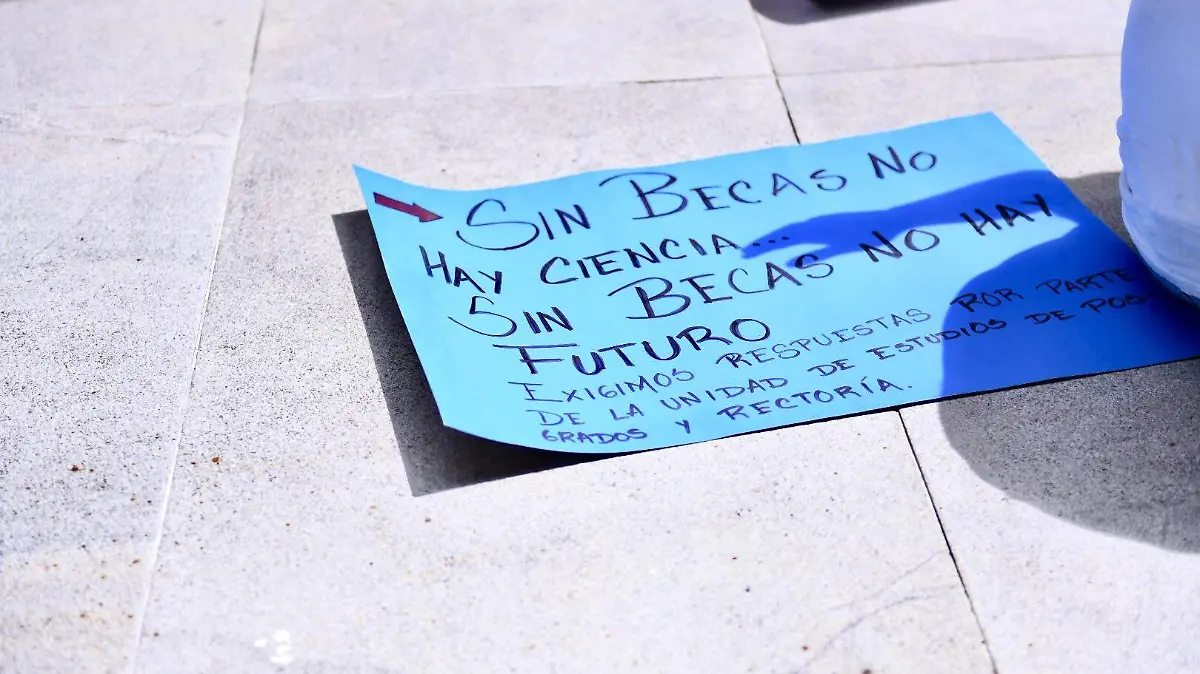 SIN BECAS NO
HAY CIENCIA...
SIN BECAS NO HAY
FUTURO
EXIGIMOS RESPUESTAS POR PARTE
DE LA UNIDAD DE ESTUDIOS DE POS-
GRADOS Y RECTORÍA.